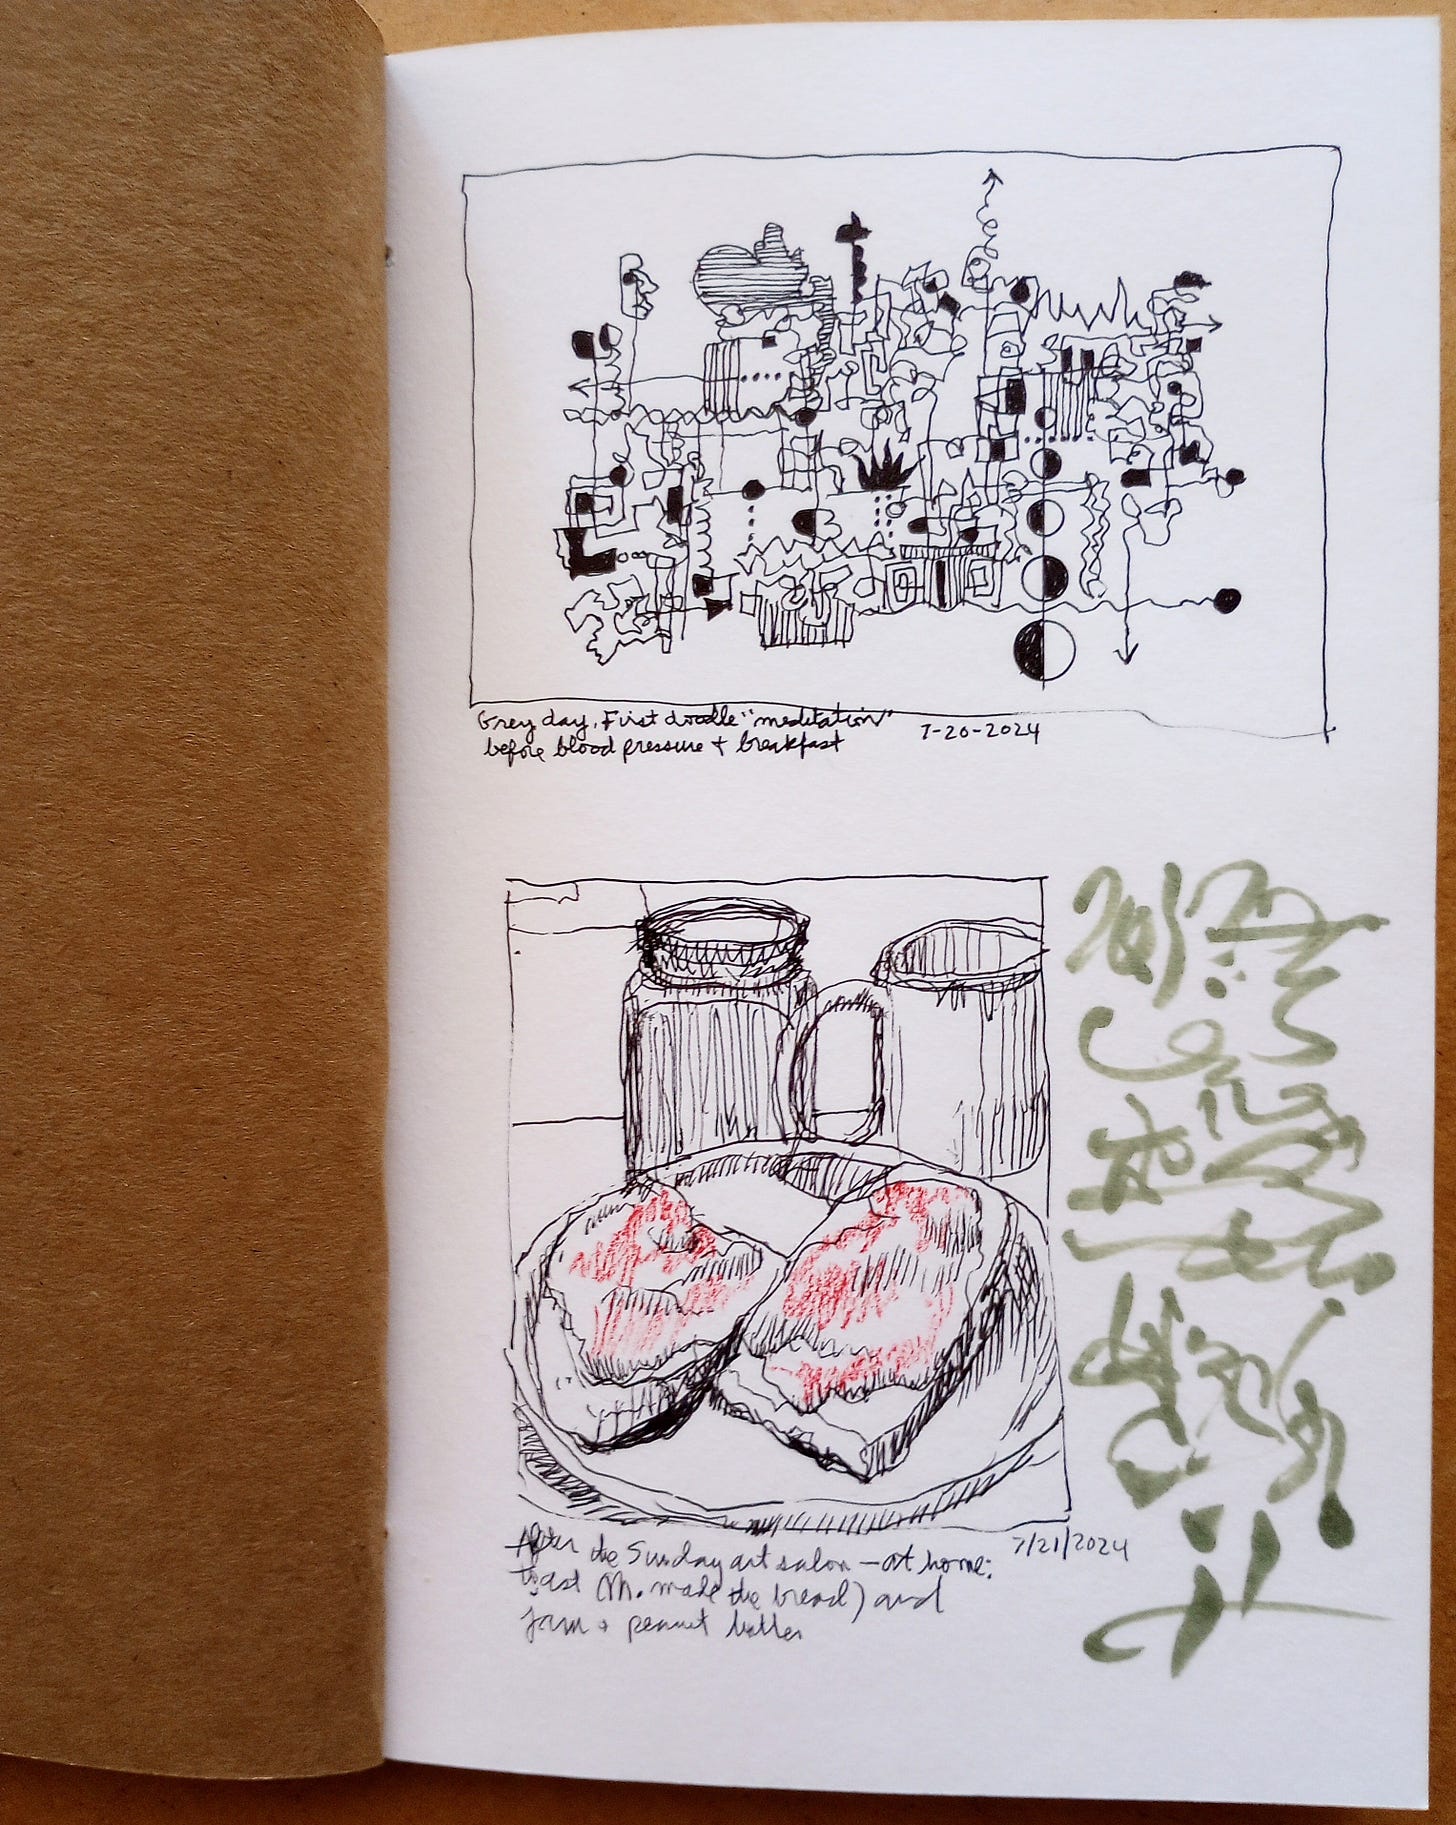 Grey day. First doodle "meditation"
before blood pressure + breakfast
7-20-2024
After the Sunday art salon — at home:
toast (M. made the bread) and
jam + peanut butter
7/21/2024